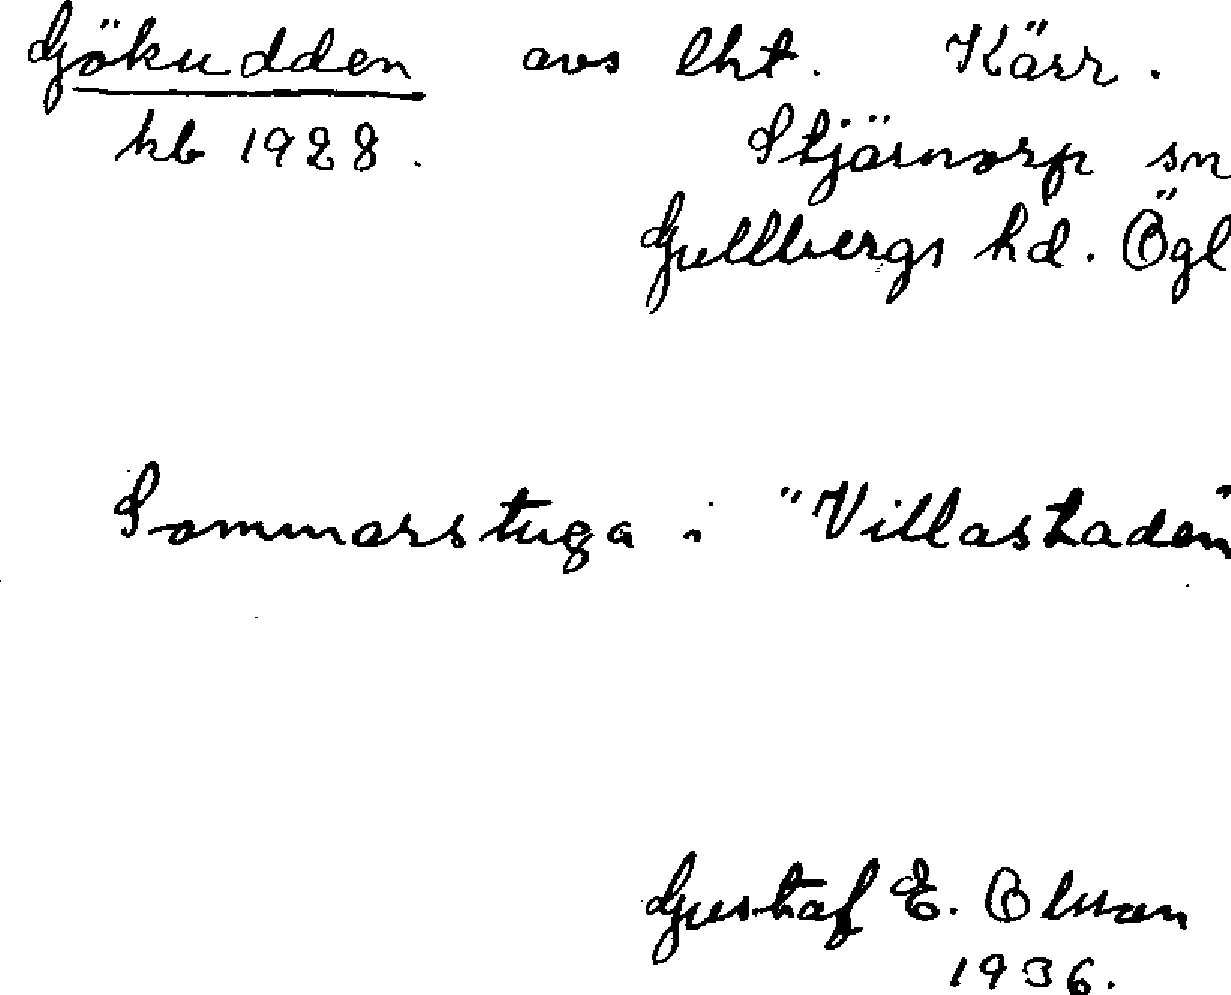 Gökudden avs lht. Kärr.
kb 1928. Stjärnorp sn
Gullbergs hd. Ögl
Sommarstuga i "Villastaden"
Gustaf E. Olsson
1936.